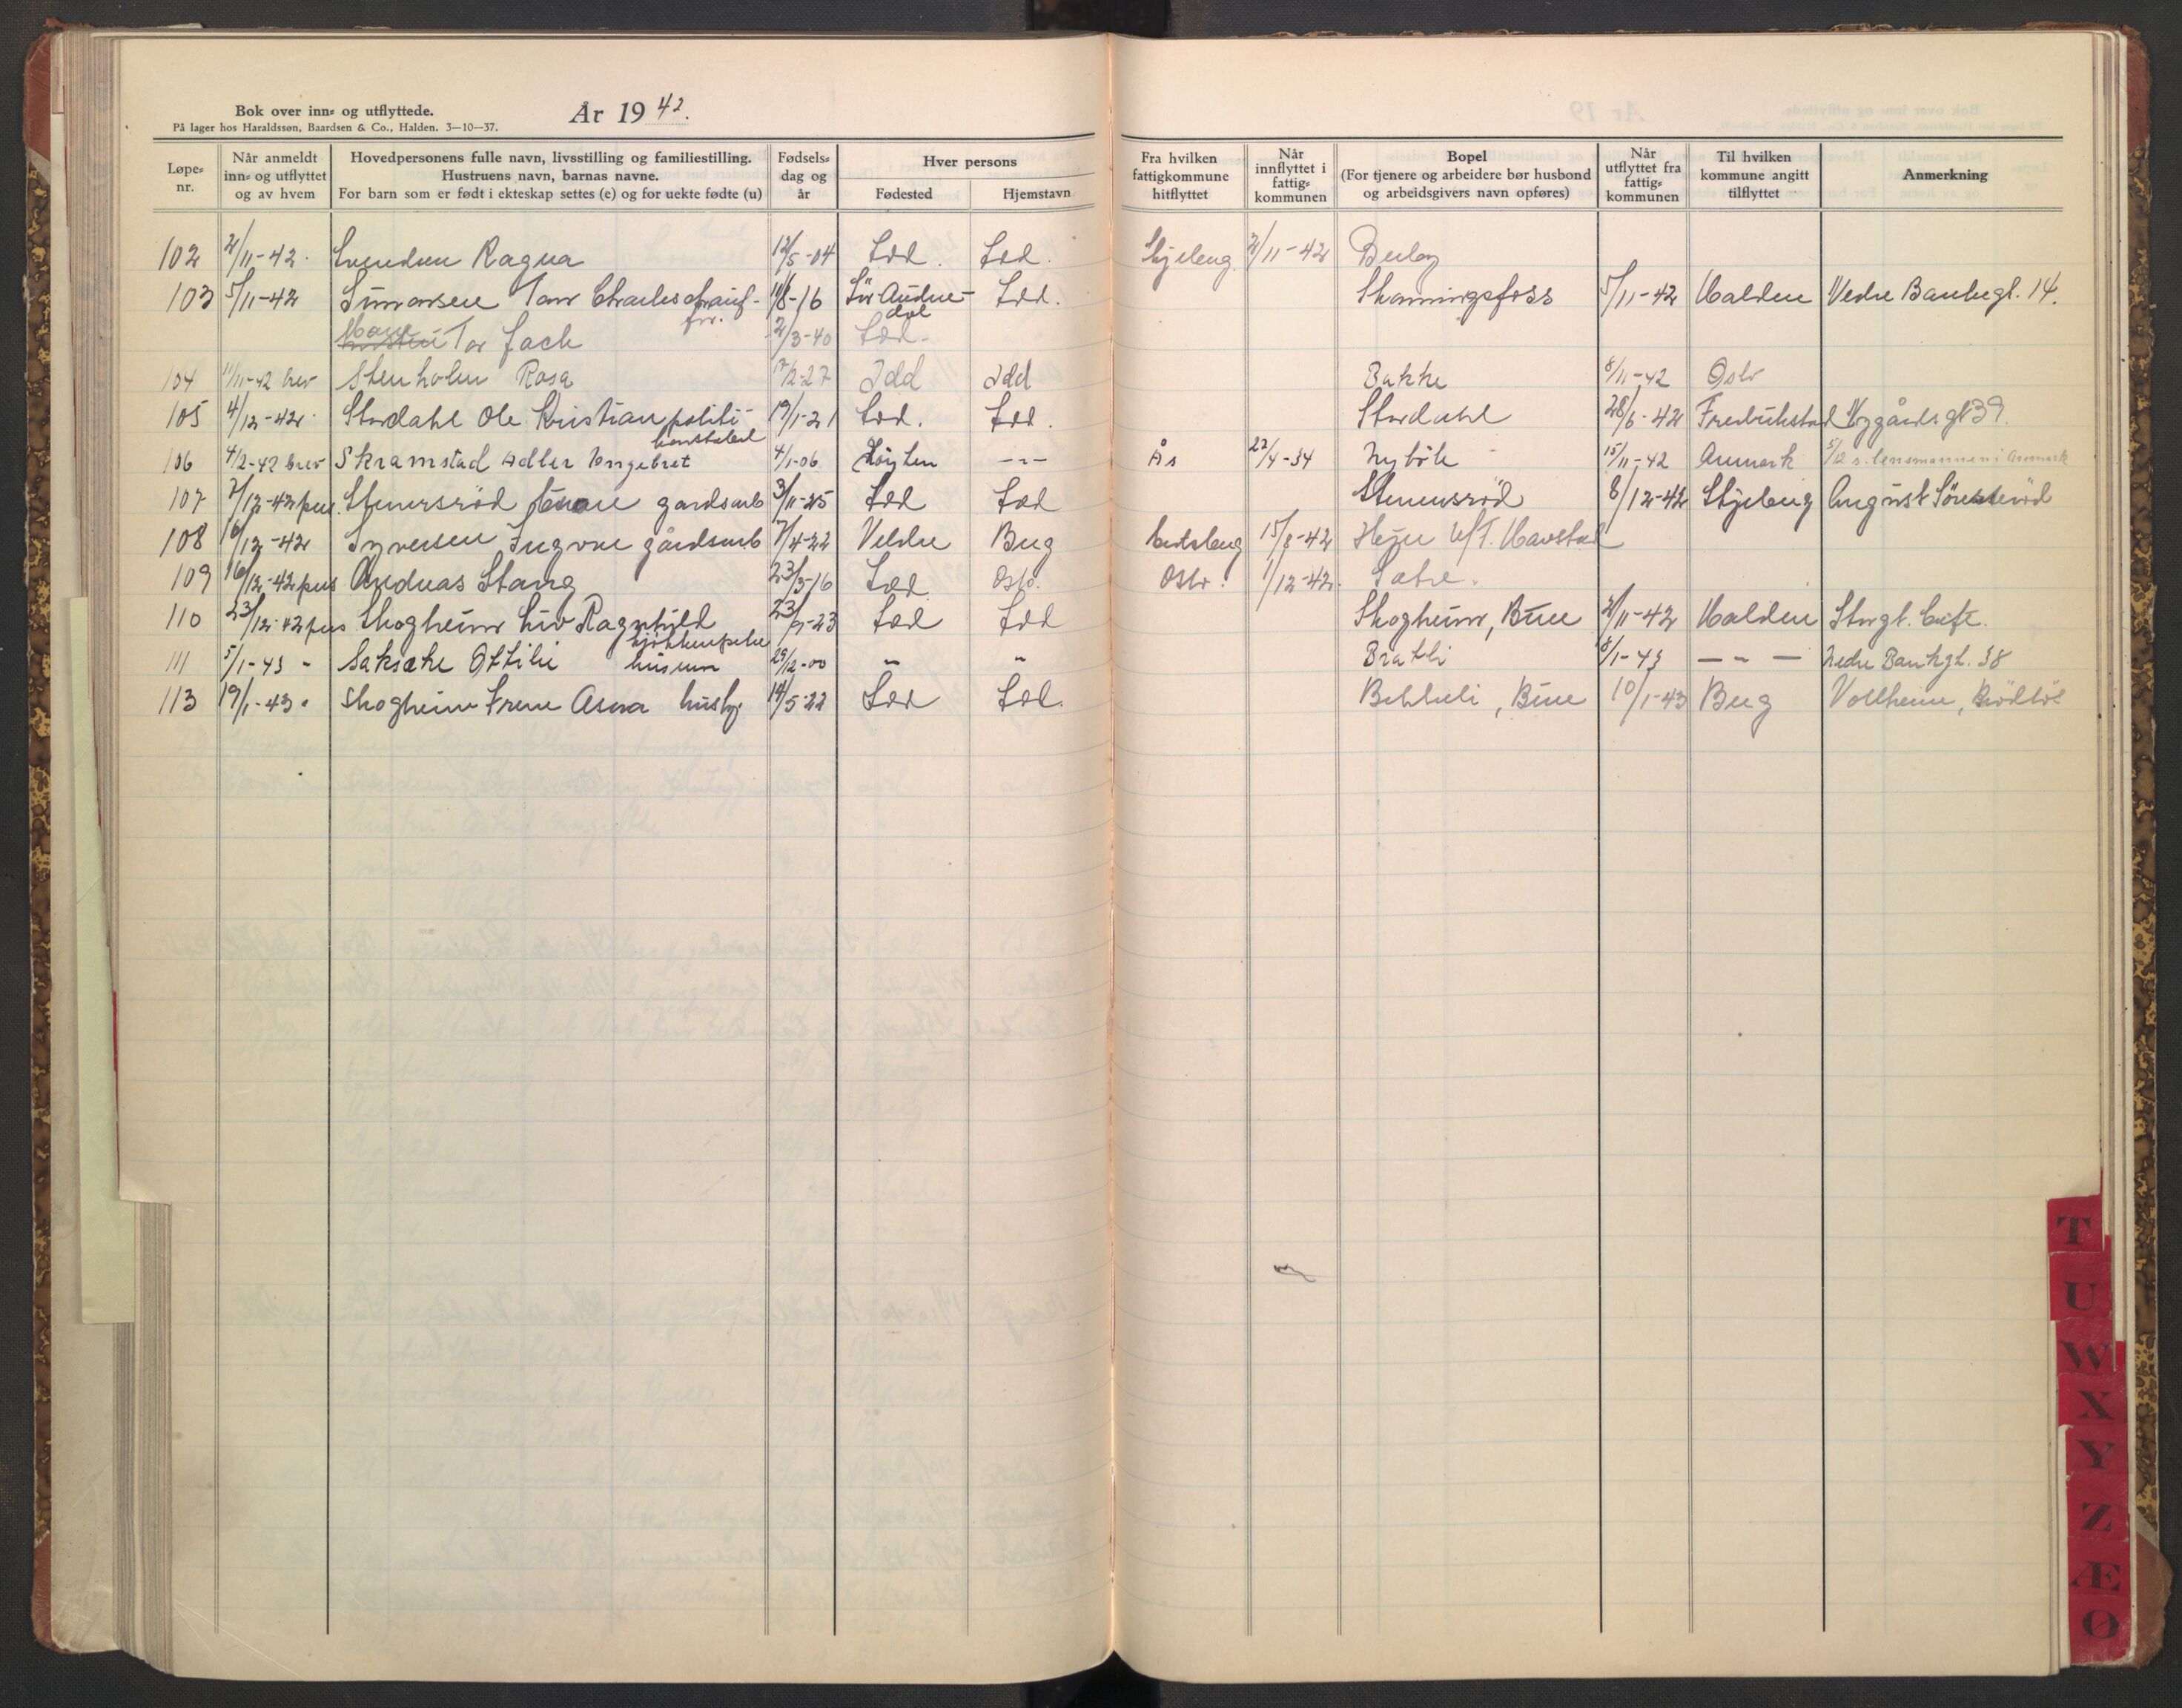 Bok over inn- og utflyttede.
År 19 42.
På lager hos Haraldssøn, Baardsen & Co., Halden. 3—10—37.
Løpe-nr.
Når anmeldt inn- og utflyttet og av hvem
Hovedpersonens fulle navn, livsstilling og familiestilling. Hustruens navn, barnas navne. For barn som er født i ekteskap settes (e) og for uekte fødte (u)
Fødsels-dag og år
Hver persons
Fødested
Hjemstavn
Fra hvilken fattigkommune hitflyttet
Når innflyttet i fattig-kommunen
Bopel (For tjenere og arbeidere bør husbond og arbeidsgivers navn opføres)
Når utflyttet fra fattig-kommunen
Til hvilken kommune angitt tilflyttet
Anmerkning
102 2/11-42. Svendsen Ragna 12/5-04 Idd. Idd. Skjeberg 2/11-42 Berby
103 5/11-42 Simonsen Tom Charles chauf- 11/8-16 Sør Audne- Idd. Skonningsfoss 5/11-42 Halden Nedre Bankegt. 14.
før. dal
Tor Jack 2/3-40 Idd.
104 11/11-42 brev Stenholm Rosa 17/2-27 Idd Idd Bakke 8/11-42 Oslo
105 4/12-42. Stordahl Ole Kristian politi- 19/1-21 Idd. Idd. Stordahl 28/6-42 Fredrikstad Nygårdsgt 39.
konstabel
106 4/2-42 brev Skramstad Adler Engebret 4/1-06 Løyten -"- Ås 22/4-34 Nybøle 15/11-42 Aremark 5/12 s. lensmannen i Aremark
107 7/12-42 pers. Stenersrød gårdsarb 3/11-25 Idd Idd Stenersrød 8/12-42 Skjeberg August
108 16/12-42 Syversen Ingvar gårdsarb 7/4-22 Veldre Berg 15/8-42
109 16/12-42 pers Andreas Stang 23/5-16 Idd Oslo. Oslo. 1/12-42.
110 23/12-42 pers Skogheim Liv Ragnhild 23/7-23 Idd Idd Skogheim, 2/11-42 Halden Storgt. Cafe.
kjøkkenpike
111 5/1-43 " Saksæhe Ottilie 29/12-00 " " Bratli 8/1-43 — " — Nedre Bankgt. 38
113 19/1-43 " Skogheim Asora hushj. 14/5-22 Idd Idd. 10/1-43 Berg
T
U
W
X
Y
Z
Æ
Ø